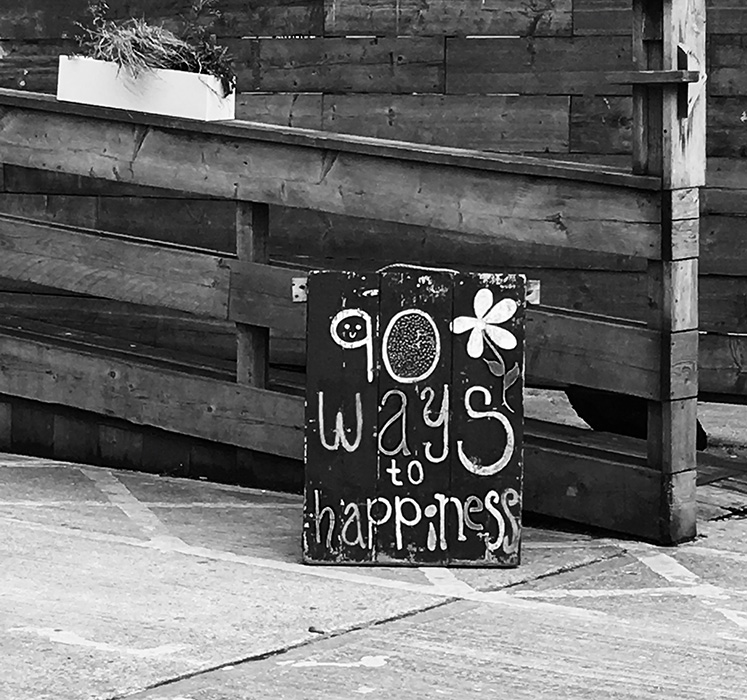 90
ways
to
happiness